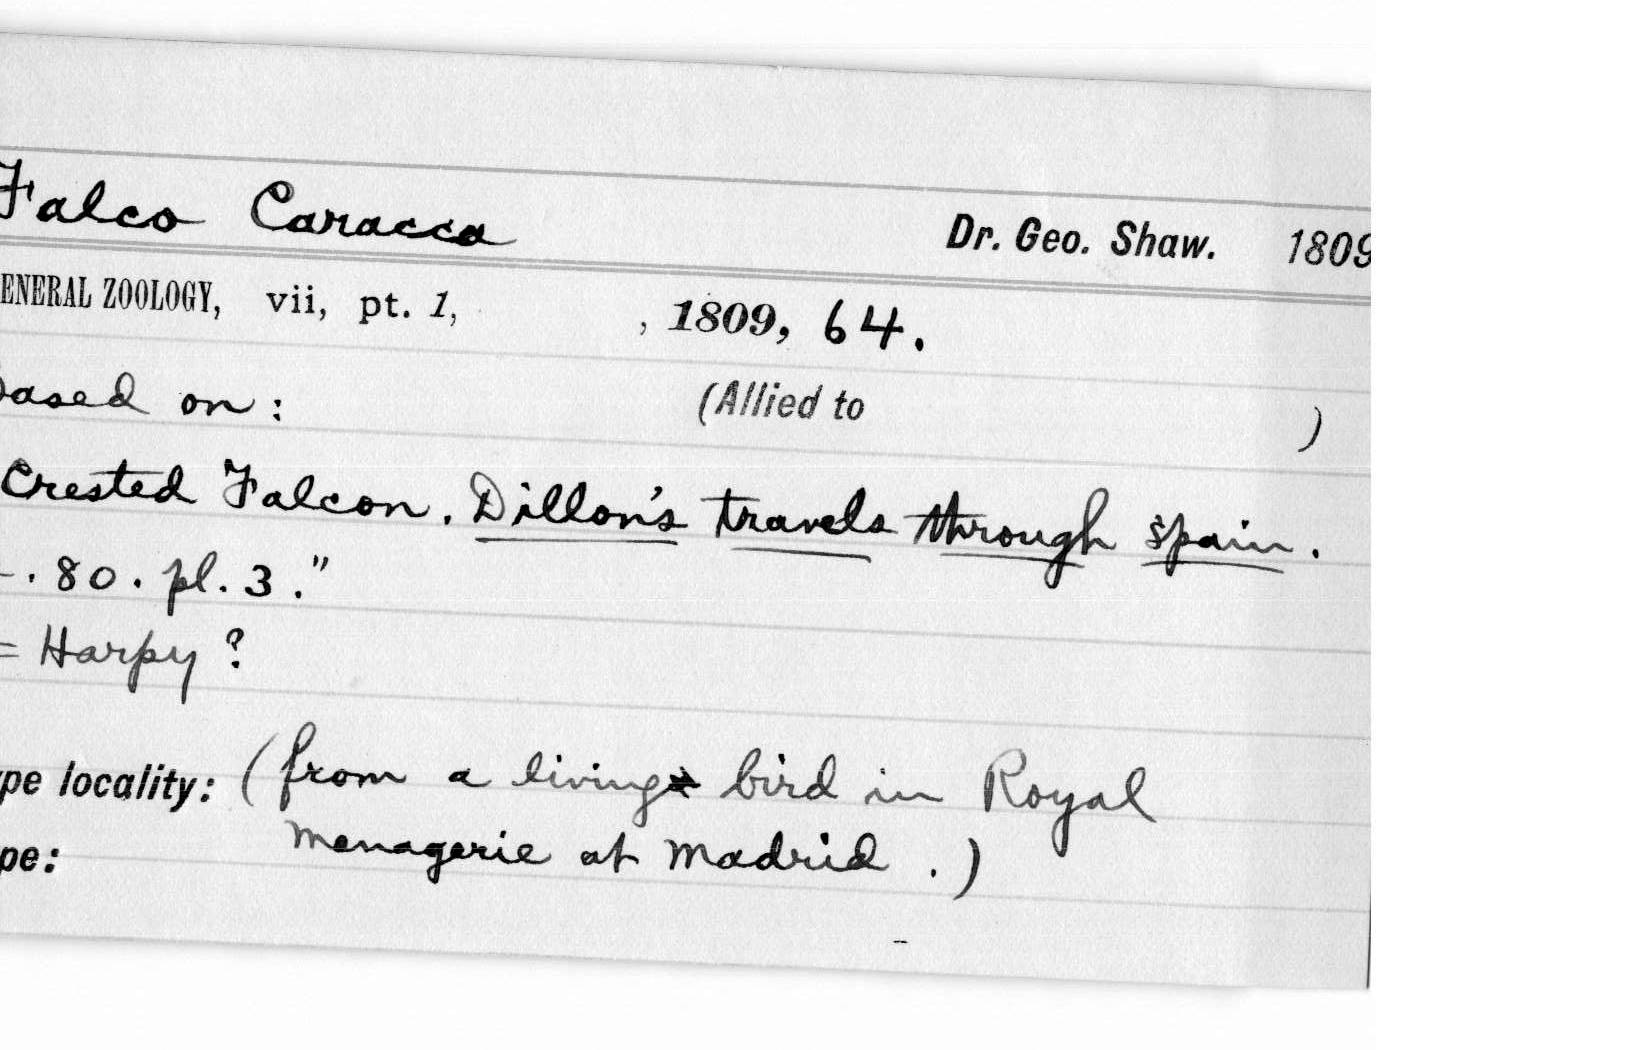 Falco Caracca Dr. Geo. Shaw. 1809
ENERAL ZOOLOGY, vii, pt. 1, , 1809, 64.
based on: (Allied to )
Crested Falcon. Dillon's travels through Spain.
. 80. pl. 3."
= Harpy ?
ype locality: (from a living bird in Royal
menagerie at Madrid.)
pe: